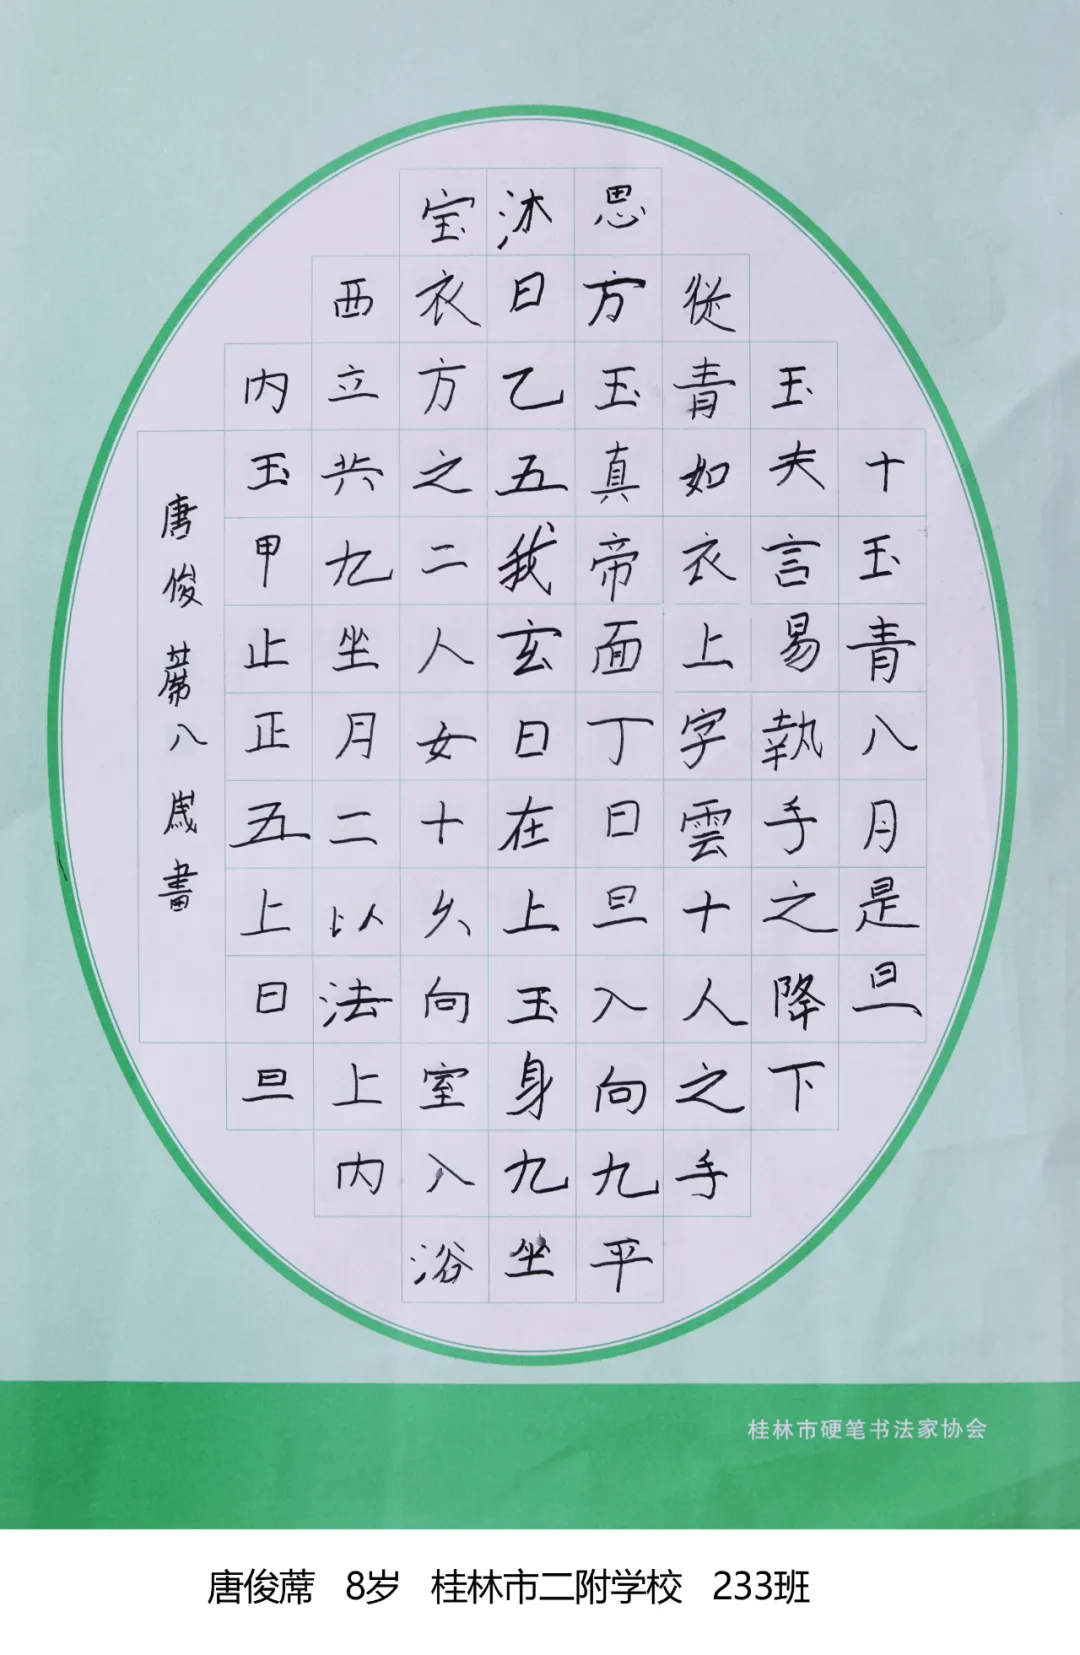 十玉青八月是旦
玉夫言易執手之降下
從青如衣上字雲十人之手
思方玉真帝面丁日旦入向九平
沐日乙五我玄日在上玉身九坐
宝衣方之二人女十久向室入浴
西立共九坐月二以法上内
内玉甲止正五上日旦
唐俊蓆八歲書
桂林市硬笔书法家协会
唐俊蓆 8岁 桂林市二附学校 233班